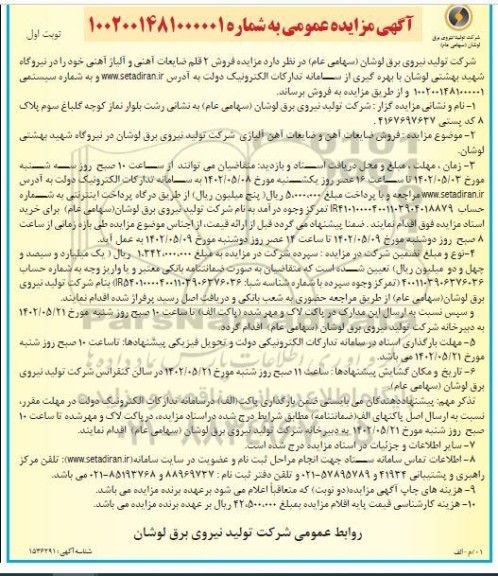 آگهی مزایده عمومی به شماره ۱۰۰۲۰۰۱۴۸۱۰۰۰۰۰۱
نوبت اول
شرکت تولید نیروی برق لوشان
(سهامی عام)
شرکت تولید نیروی برق لوشان (سهامی عام) در نظر دارد مزایده فروش ۲ قلم ضایعات آهنی و آلیاژ آهنی خود را در نیروگاه
شهید بهشتی لوشان با بهره گیری از سامانه تدارکات الکترونیک دولت به آدرس www.setadiran.ir و به شماره سیستمی
۱۰۰۲۰۰۱۴۸۱۰۰۰۰۰۱ و از طریق مزایده به فروش برساند.
۱- نام و نشانی مزایده گزار : شرکت تولید نیروی برق لوشان (سهامی عام) به نشانی رشت بلوار نماز کوچه گلباغ سوم پلاک
۸ کد پستی ۴۱۶۷۶۹۷۶۳۷ .
۲- موضوع مزایده : فروش ضایعات آهن و ضایعات آهن آلیاژی شرکت تولید نیروی برق لوشان در نیروگاه شهید بهشتی
لوشان.
۳- زمان ، مهلت ، مبلغ و محل دریافت اسناد و بازدید: متقاضیان می توانند از ساعت ۱۰ صبح روز سه شنبه
مورخ ۱۴۰۲/۰۵/۰۳ تا ساعت ۱۶ عصر روز یکشنبه مورخ ۱۴۰۲/۰۵/۰۸ به سامانه تدارکات الکترونیک دولت به آدرس
www.setadiran.ir مراجعه و با پرداخت مبلغ ۵.۰۰۰.۰۰۰ ریال( پنج میلیون ریال) از طریق درگاه پرداخت اینترنتی به شماره
حساب تمرکز وجوه درآمد به نام شرکت تولید نیروی برق لوشان(سهامی عام) برای خرید
اسناد مزایده فوق اقدام نمایند . ضمنا پیشنهاد می گردد قبل از ارائه قیمت، از اجناس موضوع مزایده طی بازه زمانی از ساعت
۸ صبح روز دوشنبه مورخ ۱۴۰۲/۰۵/۰۹ تا ساعت ۱۴ عصر روز دوشنبه مورخ ۱۴۰۲/۰۵/۰۹ به عمل آید.
۴- نوع و مبلغ تضمین شرکت در مزایده : سپرده شرکت در مزایده به مبلغ ۱.۳۴۲.۰۰۰.۰۰۰ ریال ( یک میلیارد و سیصد و
چهل و دو میلیون ریال) تعیین شده است که متقاضیان به صورت ضمانتنامه بانکی معتبر و یا واریز وجه به شماره حساب
۴۰۰۱۱۰۳۹۰۶۳۷۶۰۳۶ (تمرکز وجوه سپرده با شماره شناسه شبا: ) بنام شرکت تولید نیروی
برق لوشان(سهامی عام) از طریق مراجعه حضوری به شعب بانکی و دریافت اصل رسید پرفراژ شده اقدام نمایند.
و سپس نسبت به ارسال این مدارک در پاکت لاک و مهر شده (پاکت الف) تا ساعت ۱۰ صبح روز شنبه مورخ ۱۴۰۲/۰۵/۲۱
به دبیرخانه شرکت تولید نیروی برق لوشان (سهامی عام) اقدام گردد.
۵- مهلت بارگذاری اسناد در سامانه تدارکات الکترونیکی دولت و تحویل فیزیکی پیشنهادها: تا ساعت ۱۰ صبح روز شنبه
مورخ ۱۴۰۲/۰۵/۲۱ می باشد.
۶- تاریخ و مکان گشایش پیشنهادها : ساعت ۱۱ صبح روز شنبه مورخ ۱۴۰۲/۰۵/۲۱ در سالن کنفرانس شرکت تولید نیروی
برق لوشان (سهامی عام).
تذکر مهم: پیشنهاددهندگان می بایستی ضمن بارگذاری پاکت (الف) در سامانه تدارکات الکترونیک دولت در مهلت مقرر،
نسبت به ارسال اصل پاکتهای الف(ضمانتنامه) مطابق شرایط درج شده در اسناد مزایده، در پاکت لاک و مهر شده تا ساعت ۱۰
صبح روز شنبه مورخ ۱۴۰۲/۰۵/۲۱ به دبیرخانه شرکت تولید نیروی برق لوشان (سهامی عام) اقدام نمایند.
۷- سایر اطلاعات و جزئیات در اسناد مزایده درج شده است.
۸- اطلاعات تماس سامانه ستاد جهت انجام مراحل ثبت نام و عضویت در سایت سامانه(www.setadiran.ir): تلفن مرکز
راهبری و پشتیبانی ۴۱۹۳۴ و ۵۷۸۹۵۷۸۹-۰۲۱ و تلفن دفتر ثبت نام : ۸۸۹۶۹۷۳۷ و ۸۵۱۹۳۷۶۸-۰۲۱ می باشد.
۹- هزینه های چاپ آگهی مزایده(دو نوبت) که متعاقباً اعلام می شود بر عهده برنده مزایده می باشد.
۱۰- هزینه کارشناسی قیمت پایه اقلام مزایده بمبلغ ۴۲.۵۰۰.۰۰۰ ریال بر عهده برنده مزایده می باشد.
روابط عمومی شرکت تولید نیروی برق لوشان
شناسه آگهی: ۱۵۳۶۲۹۱